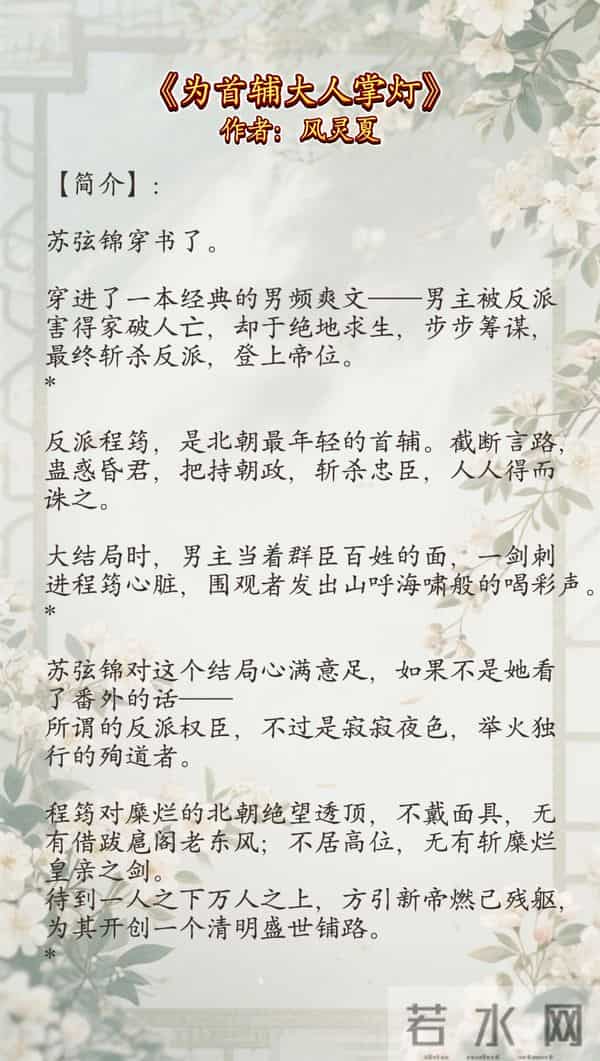 《为首辅大人掌灯》
作者：风灵夏
【简介】：
苏弦锦穿书了。
穿进了一本经典的男频爽文——男主被反派
害得家破人亡，却于绝地求生，步步筹谋，
最终斩杀反派，登上帝位。
*
反派程筠，是北朝最年轻的首辅。截断言路，
蛊惑昏君，把持朝政，斩杀忠臣，人人得而
诛之。
大结局时，男主当着群臣百姓的面，一剑刺
进程筠心脏，围观者发出山呼海啸般的喝彩声。
*
苏弦锦对这个结局心满意足，如果不是她看
了番外的话——
所谓的反派权臣，不过是寂寂夜色，举火独
行的殉道者。
程筠对糜烂的北朝绝望透顶，不戴面具，无
有借跋扈阁老东风；不居高位，无有斩糜烂
皇亲之剑。
待到一人之下万人之上，方引新帝燃己残躯，
为其开创一个清明盛世铺路。
*
若水网